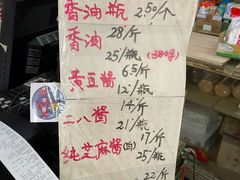 香油瓶 2.50/个
香油 28/斤
25/瓶 (380g)
黄豆酱 6.5/斤
12/瓶
二八酱 14/斤
21/瓶
纯芝麻酱(白) 17/斤
25/瓶
22/斤